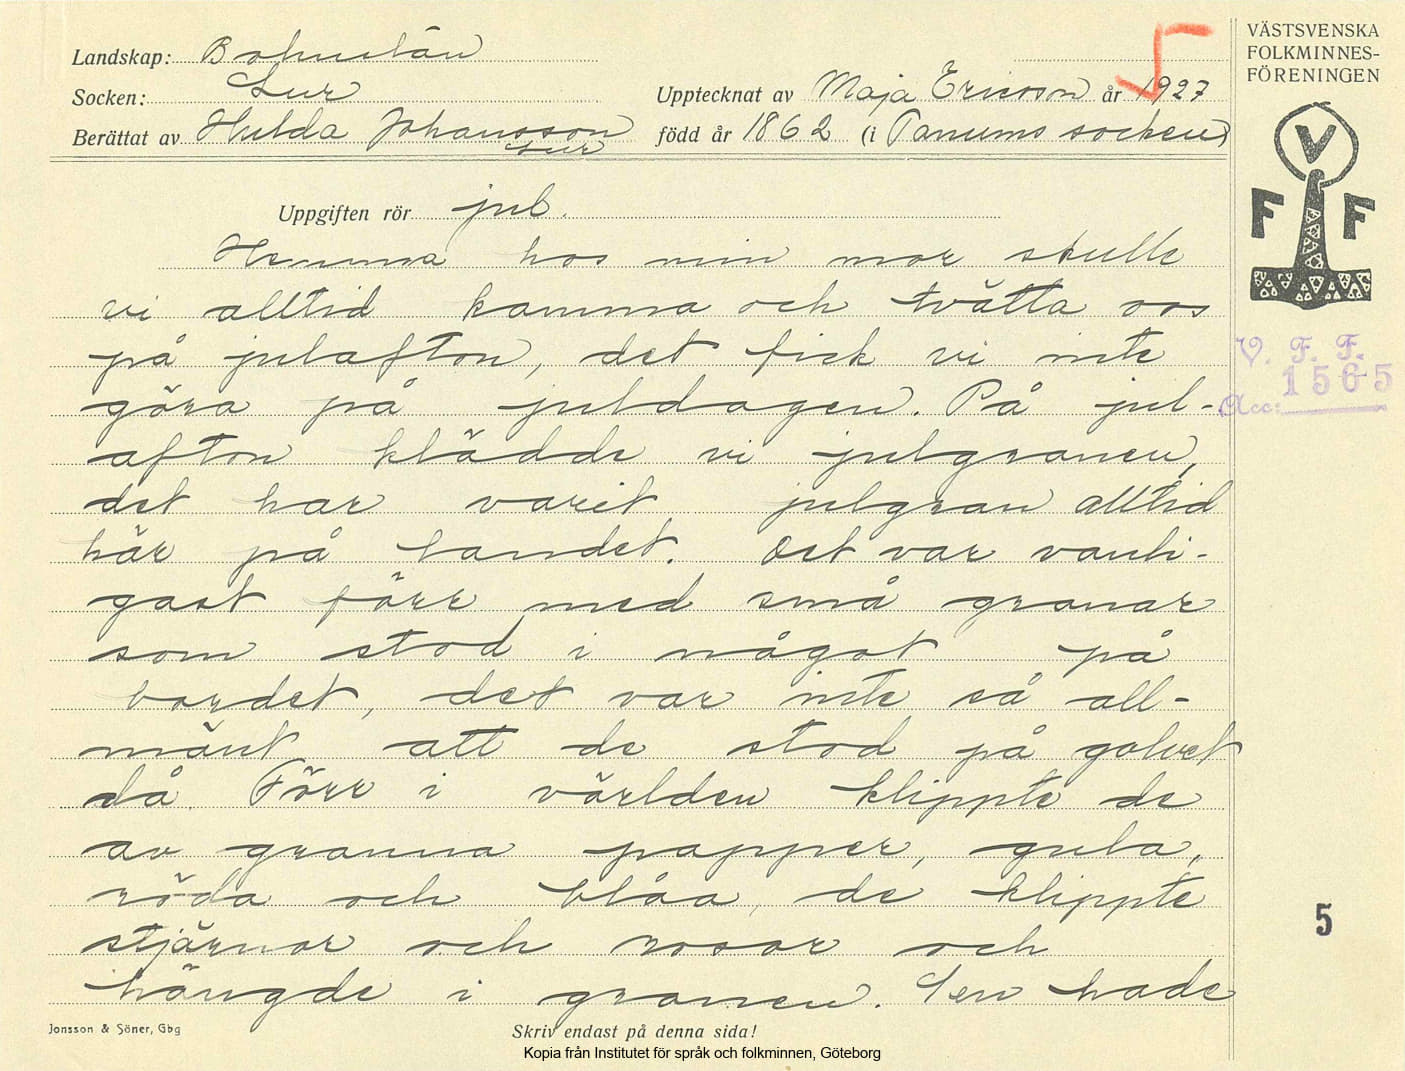 Landskap: Bohuslän
Socken: Lur
Upptecknat av Maja Ericson år 1927
Berättat av Hulda Johansson född år 1862 (i Tanums socken)
Lur
Uppgiften rör jul.
Hemma hos min mor skulle
vi alltid kamma och tvätta oss
på julafton, det fick vi inte
göra på juldagen. På jul-
afton klädde vi julgranen,
det har varit julgran alltid
här på landet. Det var vanli-
gast förr med små granar
som stod i något på
bordet, det var inte så all-
mänt att de stod på golvet
då. Förr i världen klippte de
av granna papper, gula,
röda och blåa, de klippte
stjärnor och rosor och
hängde i granen. Sen hade
VÄSTSVENSKA
FOLKMINNES-
FÖRENINGEN
V
F F
V. F. F.
1565
Acc:
5
Jonsson & Söner, Gbg
Skriv endast på denna sida!
Kopia från Institutet för språk och folkminnen, Göteborg